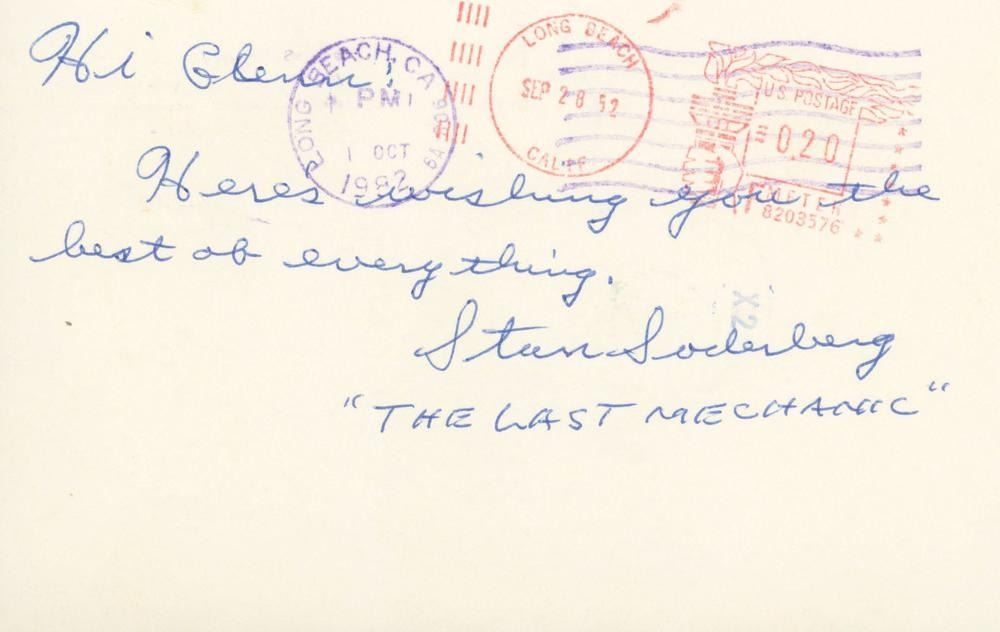 Hi Glenn!
LONG BEACH, CA
PM
1 OCT
1982
LONG BEACH
SEP 28 '52
CALIF
U.S. POSTAGE
0.20
METER
8203576
Heres wishing you the
best of everything.
X2
Stan Soderberg
"THE LAST MECHANIC"